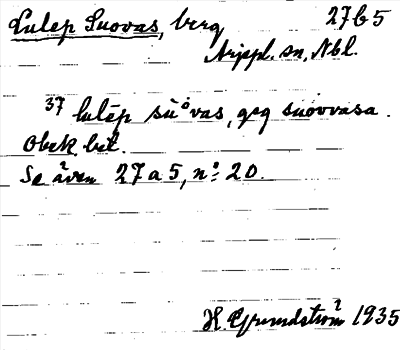 Lulep Suovas, berg 27b5
Arjepl. sn, Nbl.
37 lulēp sùovas, gsg suovvasa.
Obek. bet.
Se även 27a5, nº 20.
H. Grundström 1935